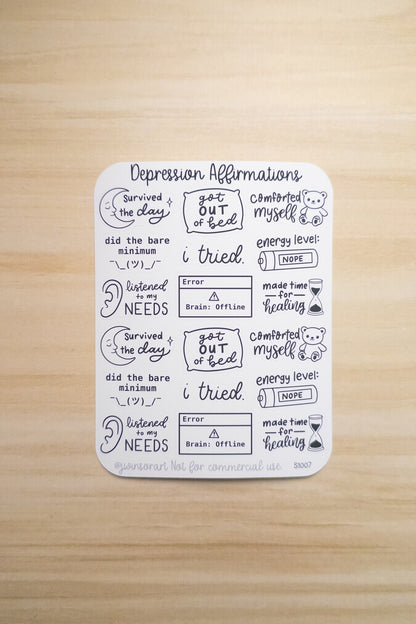 Depression Affirmations
Survived
the day
got
OUT
of bed
comforted
myself
did the bare
minimum
¯\_(ツ)_/¯
i tried.
energy level:
NOPE
listened
to my
NEEDS
Error
Brain: Offline
made time
for
healing
Survived
the day
got
OUT
of bed
comforted
myself
did the bare
minimum
¯\_(ツ)_/¯
i tried.
energy level:
NOPE
listened
to my
NEEDS
Error
Brain: Offline
made time
for
healing
Not for commercial use. S1007